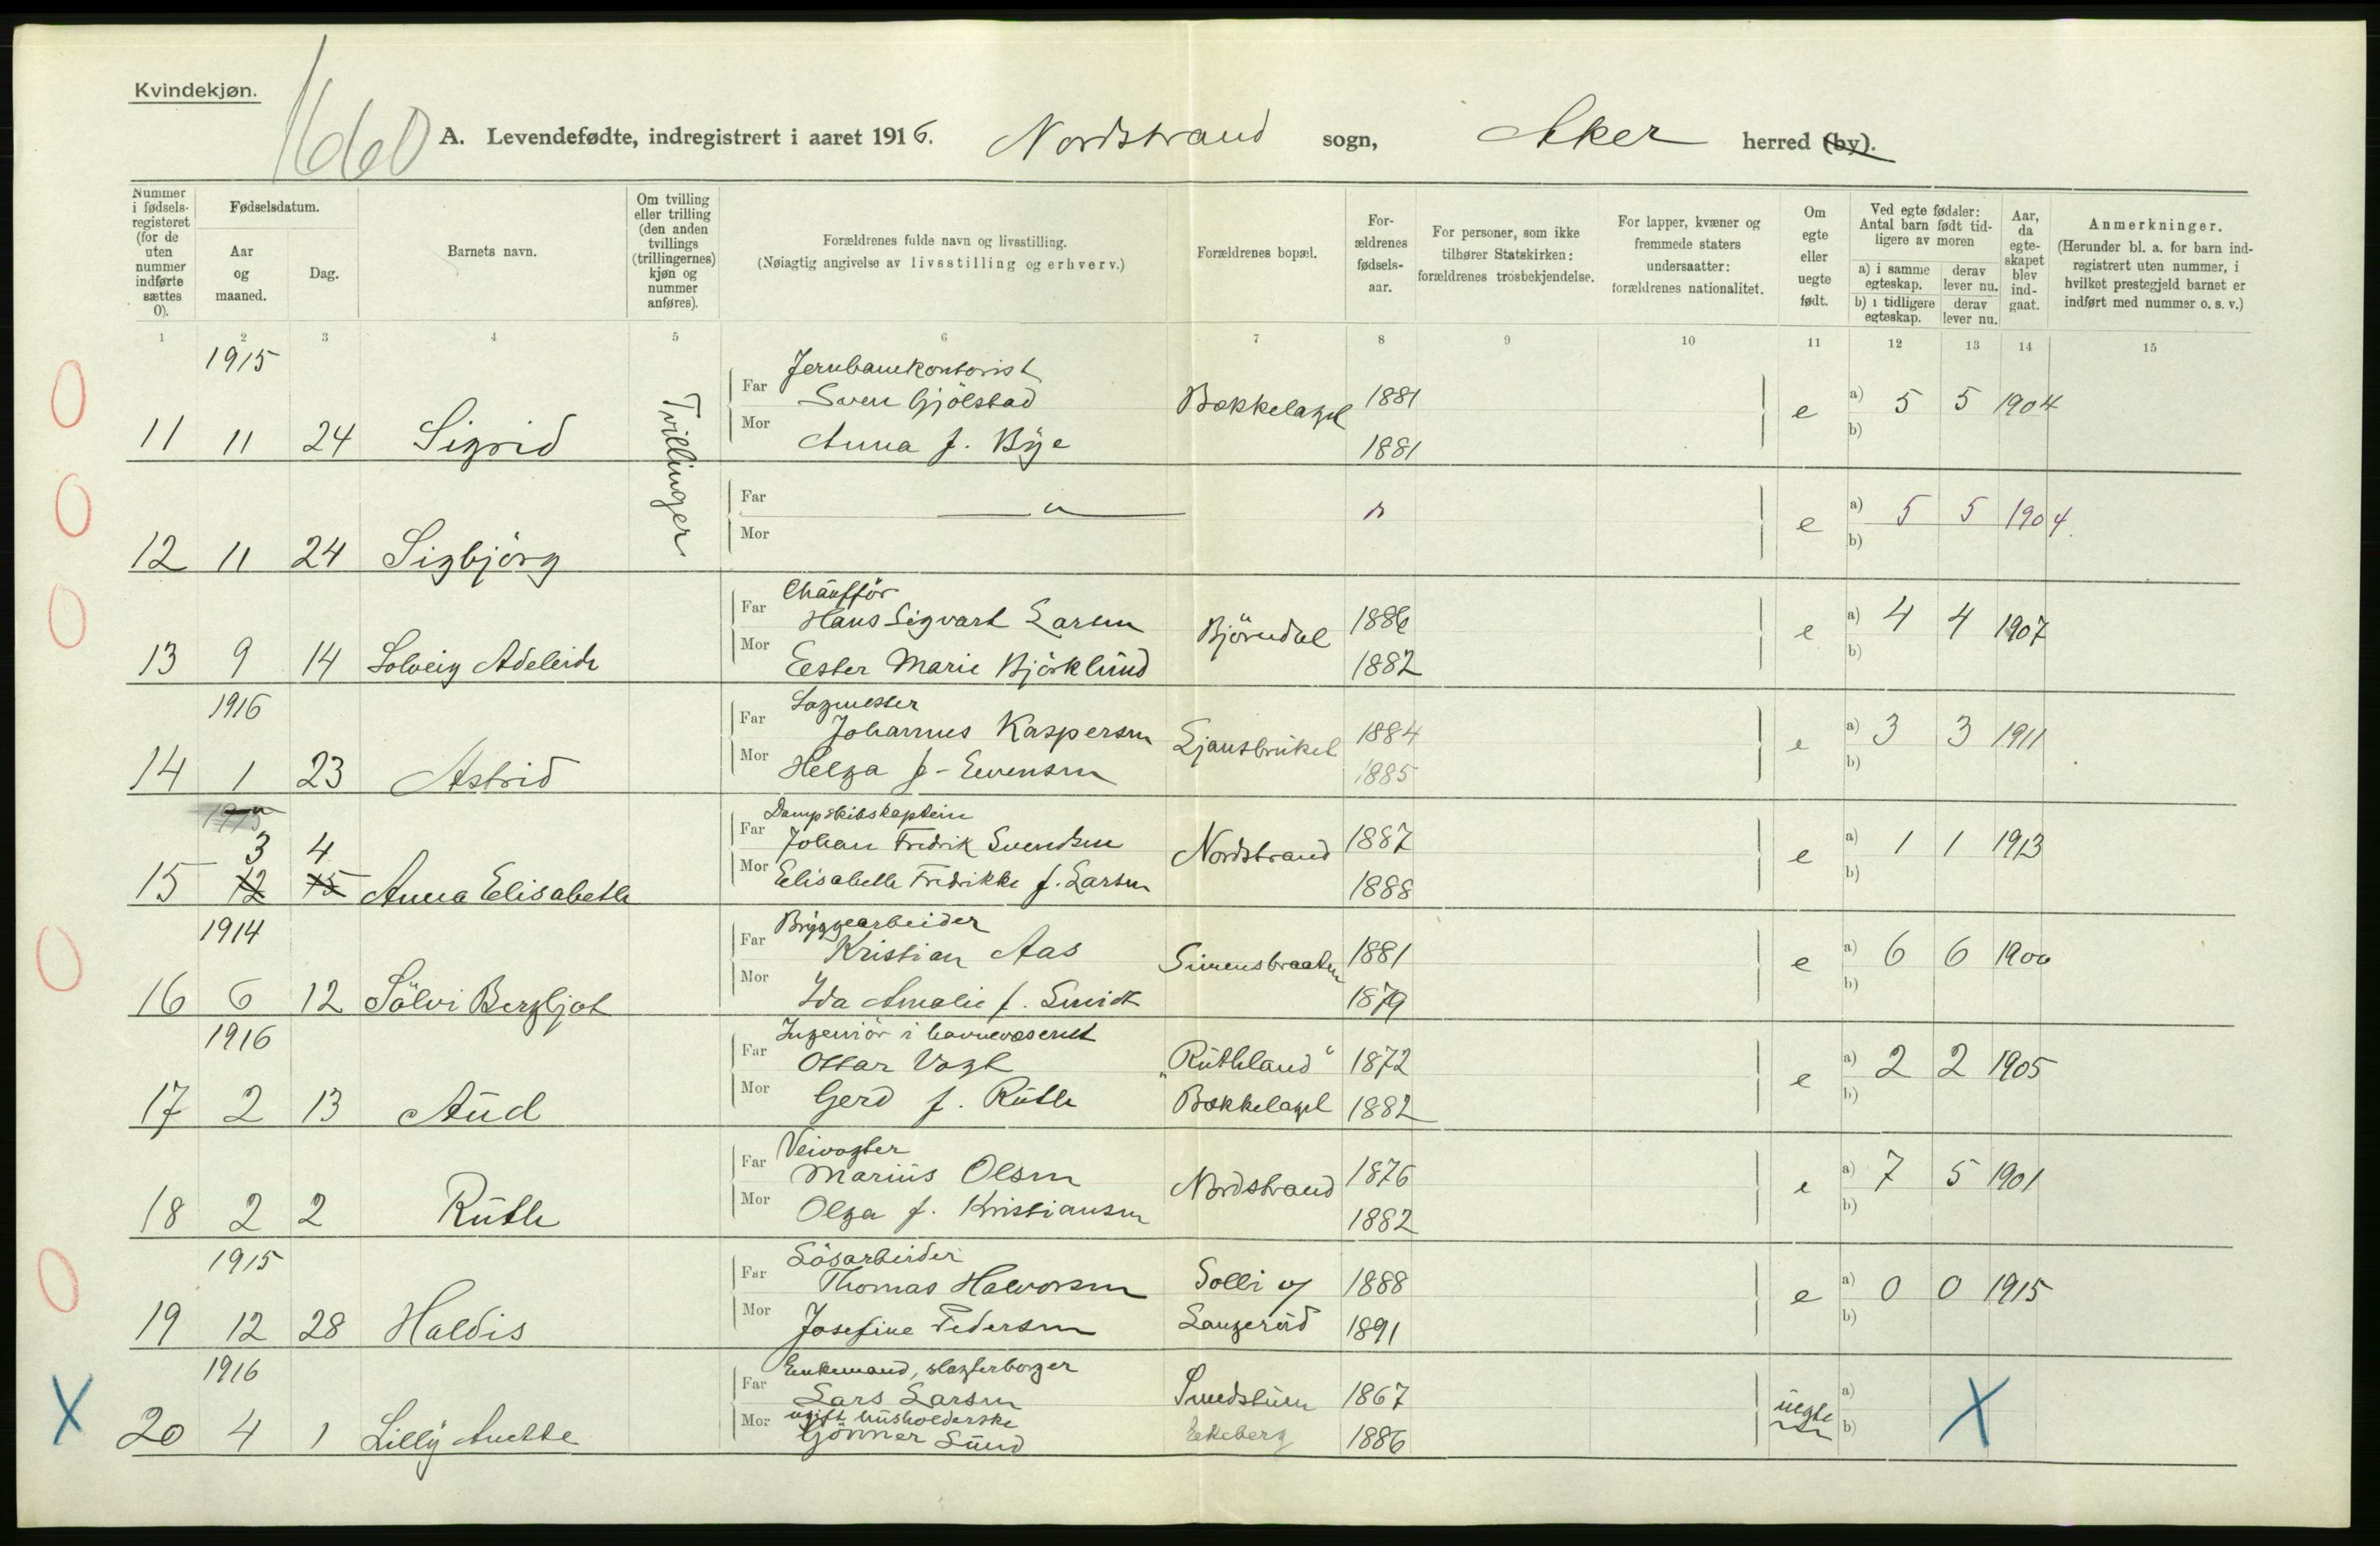 Kvindekjøn.
1660
A. Levendefødte, indregistrert i aaret 1916. Nordstrand sogn, Aker herred (by).
Nummer i fødsels-registeret (for de uten nummer indførte sættes 0).
Fødselsdatum.
Aar og maaned.
Dag.
Barnets navn.
Om tvilling eller trilling (den anden tvillings (trillingernes) kjøn og nummer anføres).
Forældrenes fulde navn og livsstilling.
(Nøiagtig angivelse av livsstilling og erhverv.)
Forældrenes bopæl.
For-ældrenes fødsels-aar.
For personer, som ikke tilhører Statskirken: forældrenes trosbekjendelse.
For lapper, kvæner og fremmede staters undersaatter: forældrenes nationalitet.
Om egte eller uegte født.
Ved egte fødsler: Antal barn født tid-ligere av moren
a) i samme egteskap.
derav lever nu.
b) i tidligere egteskap.
derav lever nu.
Aar, da egte-skapet blev ind-gaat.
Anmerkninger.
(Herunder bl. a. for barn ind-registrert uten nummer, i hvilket prestegjeld barnet er indført med nummer o. s. v.)
1 2 3 4 5 6 7 8 9 10 11 12 13 14 15
1915
Jernbanekontorist
Far Sven Gjölstad Bækkelaget 1881 e a) 5 5 1904
b)
11 11 24 Sigrid Tvillinger Mor Anna f. Bye 1881
Far — " — " e a) 5 5 1904.
12 11 24 Sigbjörg Mor b)
Chaufför
Far Hans Sigvart Larsen Björndal 1886 e a) 4 4 1907
13 9 14 Solveig Adeleide Mor Eester Marie Björklund 1882 b)
1916
Sagmester
Far Johannes Kaspersen Ljansbruket 1884 e a) 3 3 1911
14 1 23 Astrid Mor Helga f- Evensen 1885 b)
1915
Dampskibskaptein
3 4 Far Johan Fredrik Svendsen Nordstrand 1887 e a) 1 1 1913
15 12 15 Anna Elisabeth Mor Elisabeth Fredrikke f. Larsen 1888 b)
1914
Bryggearbeider
Far Kristian Aas Simensbraaten 1881 e a) 6 6 1900
16 6 12 Sölvi Bergljot Mor Ida Amalie f. Smidt 1879 b)
1916
Ingeniör i havnevæsenet
Far Ottar Vogt "Ruthland" 1872 e a) 2 2 1905
17 2 13 Aud Mor Gerd f. Ruth Bækkelaget 1882 b)
Veivogter
Far Marius Olsen Nordstrand 1876 e a) 7 5 1901
18 2 2 Ruth Mor Olga f. Kristiansen 1882 b)
1915
Lösarbeider
Far Thomas Halvorsen Solli og 1888 e a) 0 0 1915
19 12 28 Haldis Mor Josefine Pedersen Langerud 1891 b)
1916
Enkemand, slagterborger
Far Lars Larsen Smedstuen 1867 uegte a)
ugift husholderske
X 20 4 1 Lilly Anette Mor Gönner Sund Ekeberg 1886 b) X